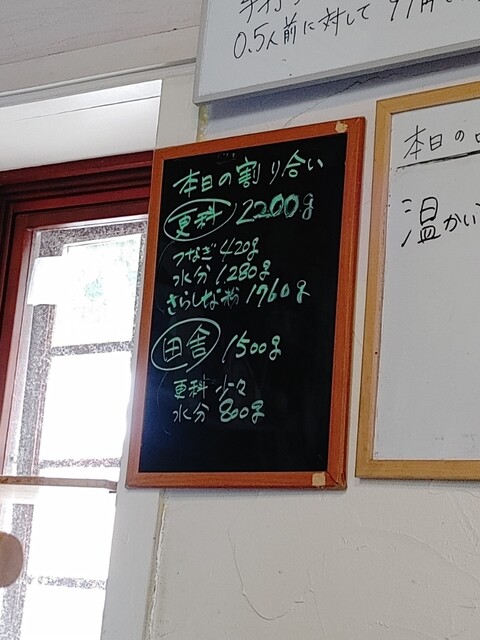 0.5人前に対して
本日の割り合い
更科 2200g
つなぎ 420g
水分 1280g
さらしな粉 1760g
田舎 1500g
更科 少々
水分 800g
本日の
温かい